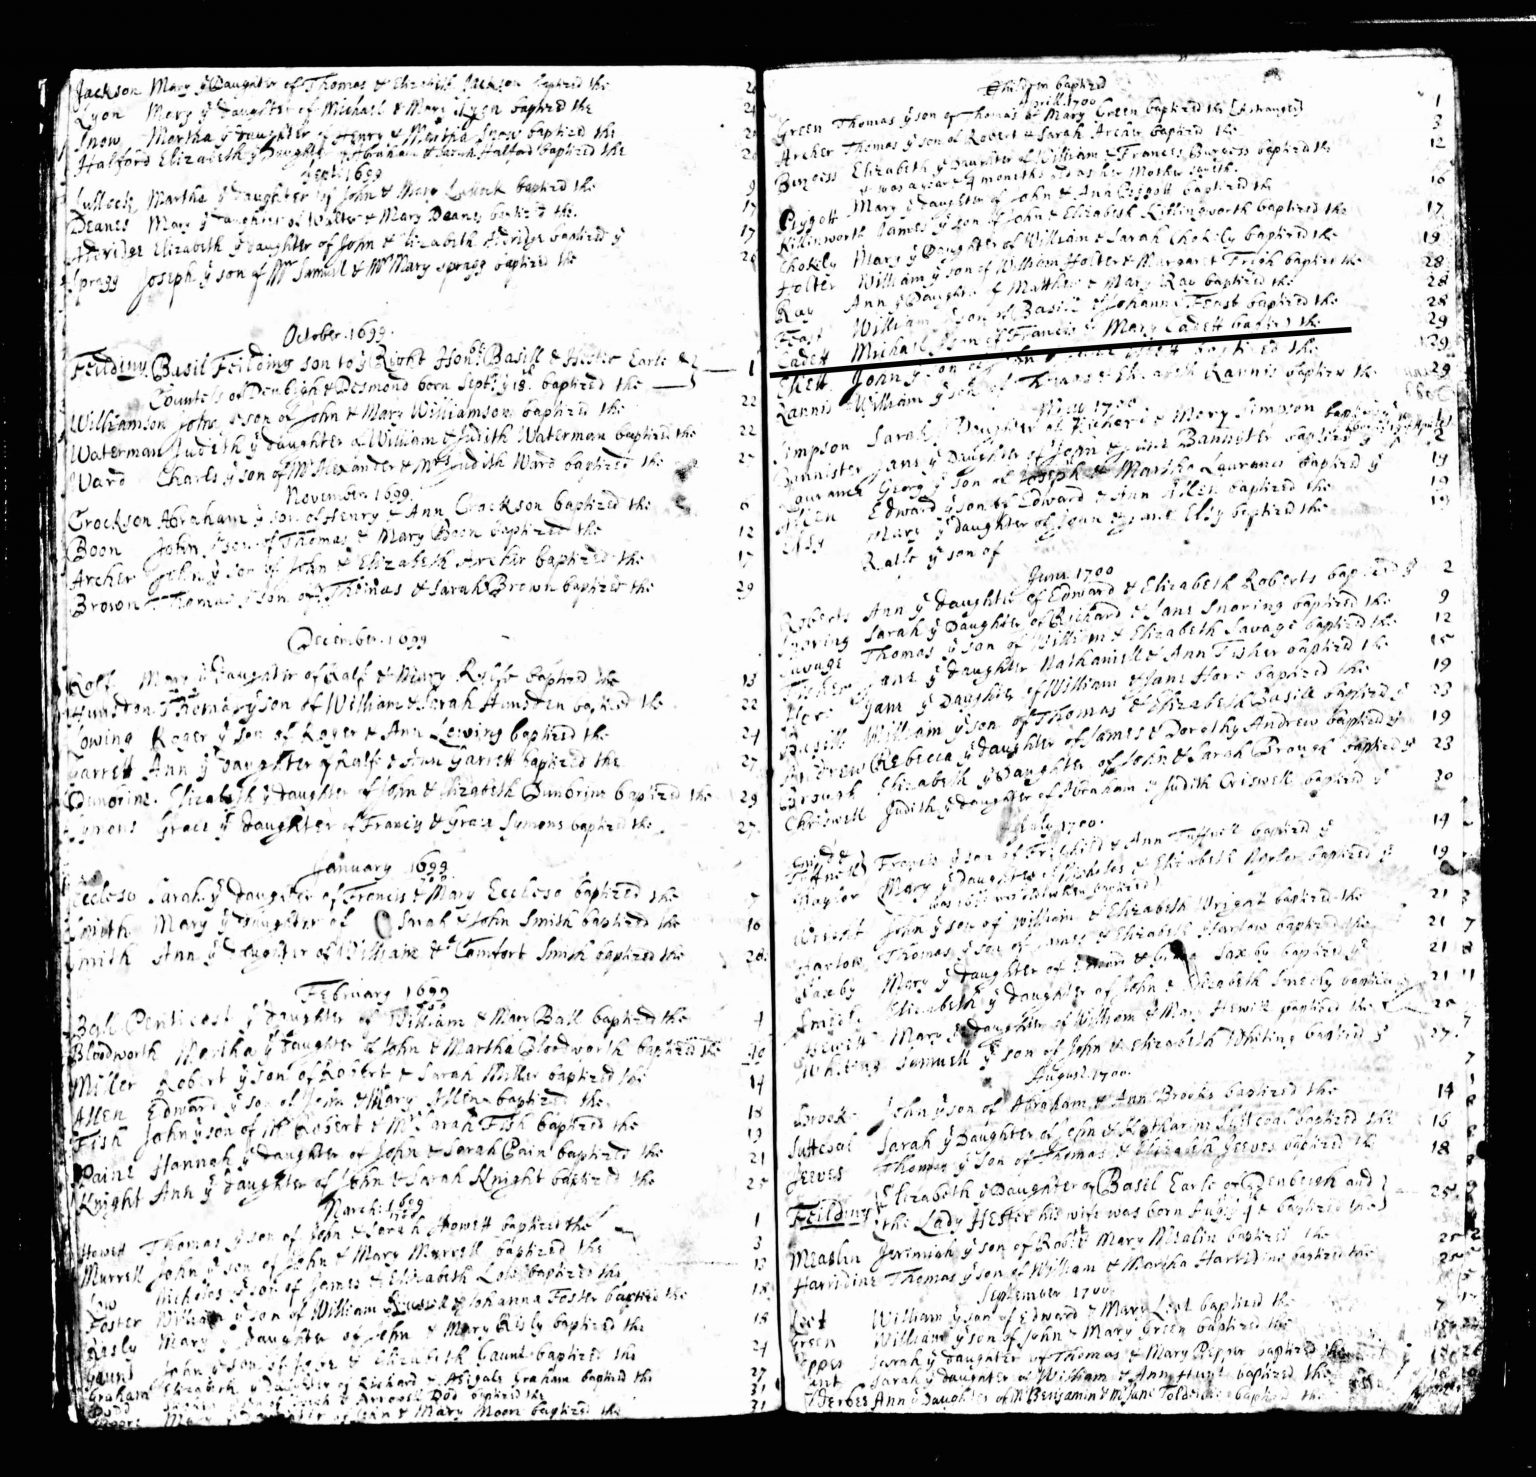 Jackson Mary ye Daughter of Thomas & Elizabeth Jackson baptized the
Lyon Mary ye daughter of Michael & Mary Lyon baptized the 24
Snow Martha ye daughter of Henry & Martha Snow baptized the
Halford Elizabeth ye Daughter of Abraham & Sarah Halford baptized the
1699
Martha ye daughter of John & Mary baptized the 9
Deanes Mary ye daughter of Walter & Mary Deanes baptized the 17
Elizabeth ye daughter of John & Elizabeth baptized ye 17
Spragg Joseph ye son of Mr Samuel & Mrs Mary Spragg baptized the
October 1699.
Feilding Basil Feilding son to ye Right Honble Basill & Hester Earle & 1
Countess of Denbigh & Desmond born Septr ye 18. baptized the
Williamson John ye son of John & Mary Williamson baptized the 22
Waterman Judith ye daughter of William & Judith Waterman baptized the 22
Ward Charls ye son of Mr Alexander & Mrs Judith Ward baptized the 27
November 1699.
Crockson Abraham ye son of Henry & Ann Crockson baptized the 6
Boon John ye son of Thomas & Mary Boon baptized the 12
Archer John ye son of John & Elizabeth Archer baptized the 17
Brown Thomas ye son of Thomas & Sarah Brown baptized the 29
December 1699
Rolf Mary ye Daughter of Ralf & Mary baptized the 13
Hunsdon Thomas ye son of William & Sarah Hunsden baptized the 22
Lowing Roger ye son of Roger & Ann Lowing baptized the 24
Garrett Ann ye daughter of Ralf & Ann Garrett baptized the 27
Elizabeth ye daughter of John & Elizabeth baptized the 29
Symons Grace ye daughter of Francis & Grace Symons baptized the 27.
January 1699
Eccleso Sarah ye daughter of Francis & Mary Eccleso baptized the 7
Smith Mary ye daughter of Sarah & John Smith baptized the 16
Smith Ann ye daughter of William & Comfort Smith baptized the 28.
February 1699
Ball Penticost ye daughter of William & Mary Ball baptized the 4
Bloodworth Martha ye daughter of John & Martha Bloodworth baptized the 10
Miller Robert ye son of Robert & Sarah Miller baptized the 14
Allen Edward ye son of John & Mary Allen baptized the 18
Fish John ye son of Mr Robert & Mrs Sarah Fish baptized the 19
Paine Hannah ye daughter of John & Sarah Pain baptized the 21
Knight Ann ye daughter of John & Sarah Knight baptized the 25
March 1699
Howett Thomas ye son of John & Sarah Howett baptized the 1
Murrell John ye son of John & Mary Murrell baptized the 3
Low Nicholas ye son of James & Elizabeth Low baptized the 13
Foster William ye son of William & Johanna Foster baptized the 18
Risly Mary ye daughter of John & Mary Risly baptized the 18
Gaunt John ye son of & Elizabeth Gaunt baptized the 24
Graham Elizabeth ye daughter of Richard & Abigale Graham baptized the 27
Dod baptized the 31
Mary ye daughter of John & Mary Moon baptized the 31
Children baptized
April. 1700
Green Thomas ye son of Thomas & Mary Green baptized the 1
Archer Thomas ye son of Robert & Sarah Archer baptized the 3
Burgess Elizabeth ye Daughter of William & Frances Burgess baptized the 12
months old as her Mother saith.
Piggott Mary ye daughter of John & Ann Piggott baptized the 16
Killinworth James ye son of John & Elizabeth Killingworth baptized the 17
Chokely Mary ye Daughter of William & Sarah Chokely baptized the 19
Holter William ye son of William Holter & Margaret baptized the 28
Ray Ann ye Daughter of Matthew & Mary Ray baptized the 28
Feast William ye son of Basill & Johanna Feast baptized the 28
Cadett Michael ye son of Francis & Mary Cadett baptized the 29
John ye son of baptized the 29
Rannis William ye son of Thomas & Elizabeth Rannis baptized the 29
May 1700
Simpson Sarah ye Daughter of Richard & Mary Simpson baptized ye
Bannister Jane ye Daughter of John & Jane Bannister baptized ye 2
Laurance Georg ye son of Joseph & Martha Laurance baptized ye 19
Allen Edward ye son of Edward & Ann Allen baptized the 19
Mary ye daughter of John & Jane baptized the 19
Ralfe ye son of
June 1700
Roberts Ann ye daughter of Edward & Elizabeth Roberts baptized ye 2
Snoring Sarah ye Daughter of Richard & Jane Snoring baptized the 9
Savage Thomas ye son of William & Elizabeth Savage baptized the 12
Fisher Jane ye daughter Nathaniell & Ann Fisher baptized the 15
Hore Jam ye daughter of William & Jane Hore baptized the 19
Basill William ye son of Thomas & Elizabeth Basill baptized ye 23
Andrew Rebecca ye daughter of James & Dorothy Andrew baptized ye 19
Brough Elizabeth ye Daughter of John & Sarah Brough baptized ye 23
Chriswell Judith ye daughter of Abraham & Judith Criswell baptized ye 30
July 1700.
Tuffnell Francis ye son of & Ann Tuffnell baptized ye 14
Naylor Mary ye daughter of Nicholas & Elizabeth Naylor baptized ye 19
Wright John ye son of William & Elizabeth Wright baptized the 21
Harlow Thomas ye son of James & Elizabeth Harlow baptized the 21
Saxby Mary ye daughter of Edward & Saxby baptized ye 21
Elizabeth ye daughter of John & Elizabeth baptized 21
Hewitt Mary ye daughter of William & Mary Hewitt baptized the 25
Whiting Samuell ye son of John & Elizabeth Whiting baptized ye 27.
August 1700.
Brooks John ye son of Abraham & Ann Brooks baptized the 14
Suttcoal Sarah ye Daughter of John & Katharine Suttcoal baptized the 16
Jeeves Thomas ye son of Thomas & Elizabeth Jeeves baptized the 18
Feilding Elizabeth ye Daughter of Basil Earle of Denbeigh and 25.
the Lady Hester his wife was born Augst ye & baptized the
Mealin Jeremiah ye son of Robt & Mary Mealin baptized the 25
Harridine Thomas ye son of William & Martha Harridine baptized the 25
September 1700
Leet William ye son of Edward & Mary Leet baptized the 7
Green William ye son of John & Mary Green baptized the
Sarah ye daughter of Thomas & Mary Pepper baptized the
Sarah ye daughter of William & Ann Hunt baptized the
Ann ye Daughter of Mr Benjamin & Mrs Jane baptized the